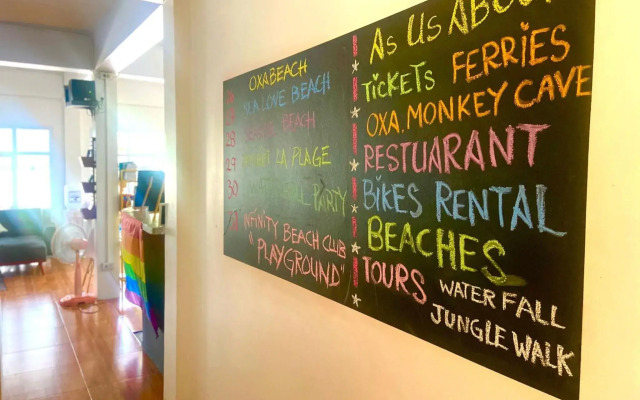 OXA BEACH
LOVE BEACH
BEACH
29 LA PLAGE
30 PARTY
INFINITY BEACH CLUB
"PLAYGROUND"
AS US ABOUT
TICKETS FERRIES
OXA. MONKEY CAVE
RESTUARANT
BIKES RENTAL
BEACHES
TOURS WATER FALL
JUNGLE WALK